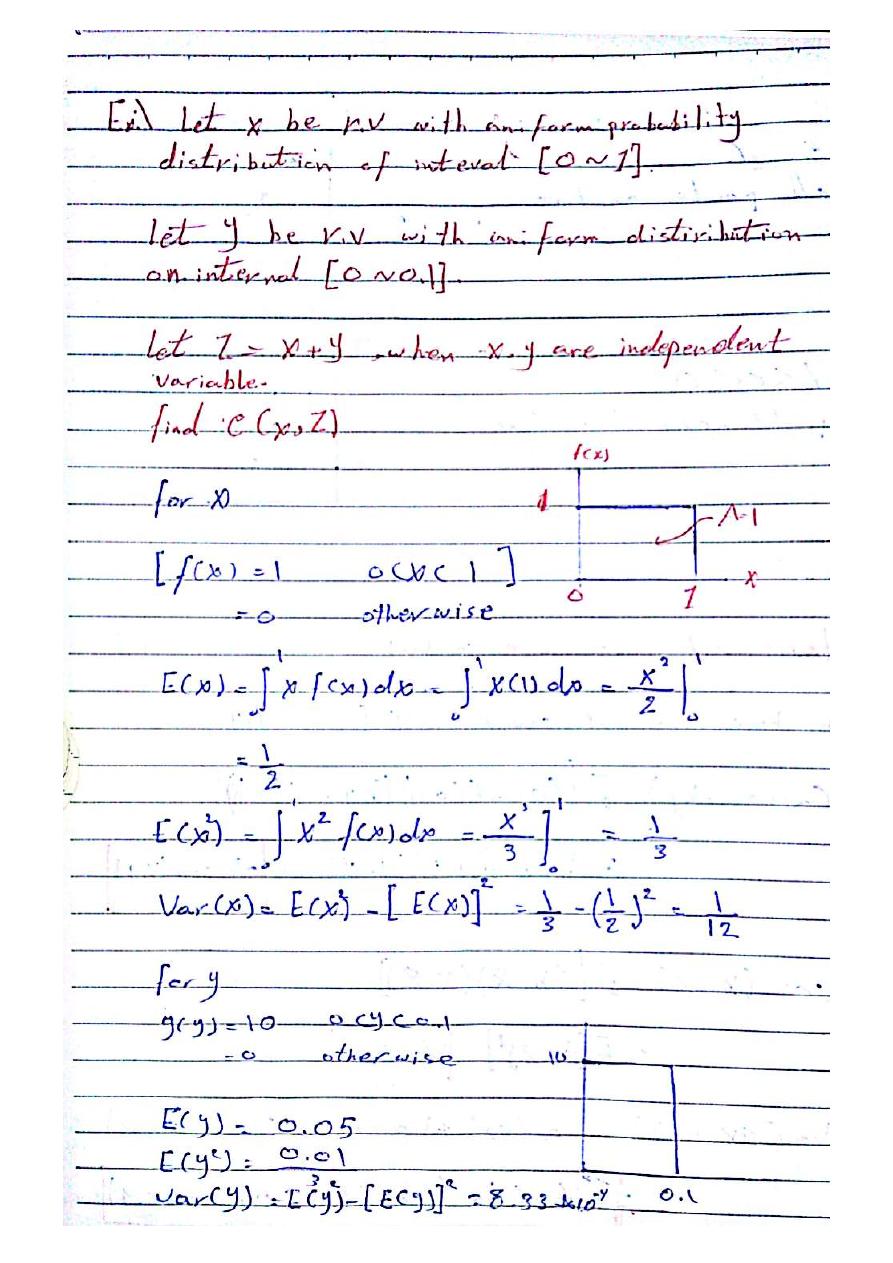 Ex:\ Let x be r.v with uniform probability
distribution of inteval [0 ~ 1]
let y be r.v with uniform distribution
on internal [0 ~ 0.1].
Let Z = x + y when x.y are independent
variable.
find e(x, Z)
f(x)
for x
1
A=1
[f(x) = 1 0<x<1]
x
0 1
= 0 otherwise
E(x) = ∫₀¹ x f(x) dx = ∫₀¹ x(1) dx = x²/2 |₀¹
= 1/2
E(x²) = ∫₀¹ x² f(x) dx = x³/3 ]₀¹ = 1/3
Var(x) = E(x²) - [E(x)]² = 1/3 - (1/2)² = 1/12
for y
g(y) = 10 0<y<0.1
= 0 otherwise 10
E(y) = 0.05
E(y²) = 0.01/3
Var(y) = E(y²) - [E(y)]² = 8.33 x 10⁻⁴ 0.1